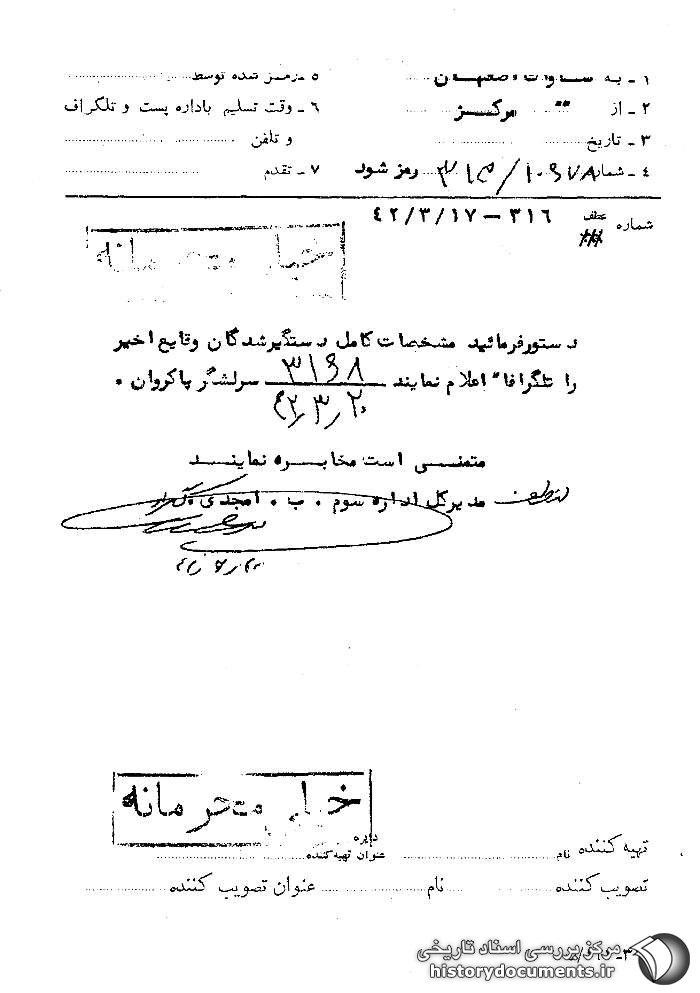 ۱ - به ساواک اصفهان ۵ - رمز شده توسط
۲ - از مرکز ۶ - وقت تسلیم باداره پست و تلگراف
۳ - تاریخ و تلفن
۴ - شماره ۳۱۵/۱۰۹۷۸ رمز شود ۷ - تقدم
شماره عطف ۳۱۶ - ۴۲/۳/۱۷
خیلی محرمانه
دستورفرمائید مشخصات کامل دستگیرشدگان وقایع اخیر
را تلگرافا" اعلام نمایند ۳۱۶۸ سرلشگر پاکروان .
۴۲/۳/۲۰
متمنی است مخابره نمایند
مدیرکل اداره سوم . ب . امجدی
خیلی محرمانه
دایره
تهیه کننده نام عنوان تهیه‌کننده
تصویب کننده نام عنوان تصویب کننده
مرکز بررسی اسناد تاریخی
historydocuments.ir